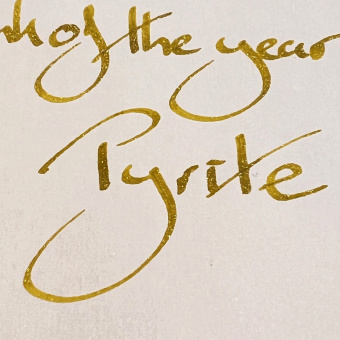 of the year
Pyrite